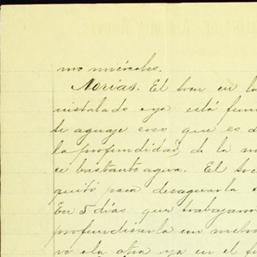 mo miércoles.
Norias. El tren en la
instalado ya está fun
de aguaje creo que es d
la profundidad, de la m
es bastante agua. El tre
quitó para desaguarla
En 5 días que trabajamo
profundizarla un metro
ro la otra ya en el f